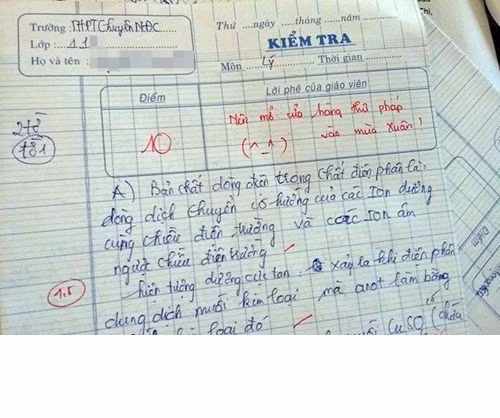 Trường : THPT Chuyên NĐC
Thứ ....ngày .....tháng ....năm .........
Lớp : 11
KIỂM TRA
Họ và tên :
Môn Lý Thời gian
Điểm
Lời phê của giáo viên
10
Nên mở cửa hàng thư pháp
(^_^) vào mùa xuân !
A) Bản chất dòng điện trong chất điện phân là:
dòng dịch chuyển có hướng của các Ion dương
cùng chiều điện trường và các Ion âm
ngược chiều điện trường
1,5
- hiện tượng dương cực tan. xảy ra khi điện phân
dung dịch muối kim loại mà anot làm bằng
loại đó
CuSO4